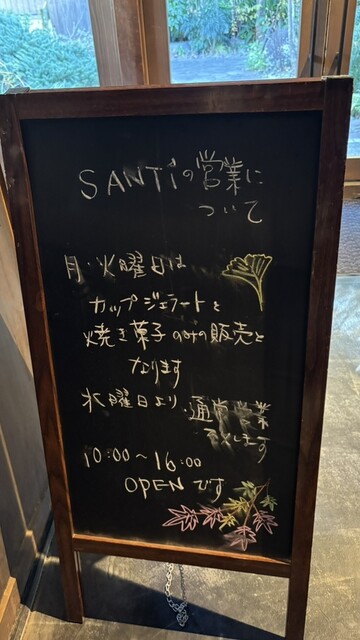 SANTiの営業に
ついて
月・火曜日は
カップジェラートと
焼き菓子のみの販売と
なります
水曜日より、通常営業
致します
10:00～16:00
OPENです